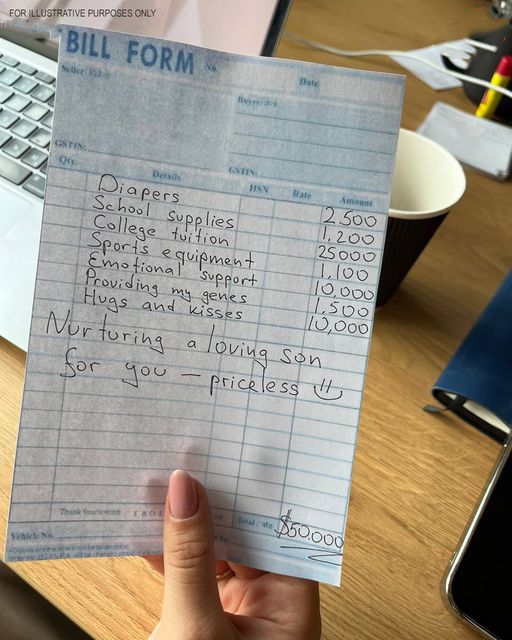 FOR ILLUSTRATIVE PURPOSES ONLY
BILL FORM No.
Date
Seller:
Buyer:
GSTIN:
GSTIN:
Qty. Details HSN Rate Amount
Diapers 2.500
School supplies 1,200
College tuition 25000
Sports equipment 1,100
Emotional support 10,000
Providing my genes 1,500
Hugs and kisses 10,000
Nurturing a loving son
for you — priceless
Thank You
Total $50.000
Vehicle No.